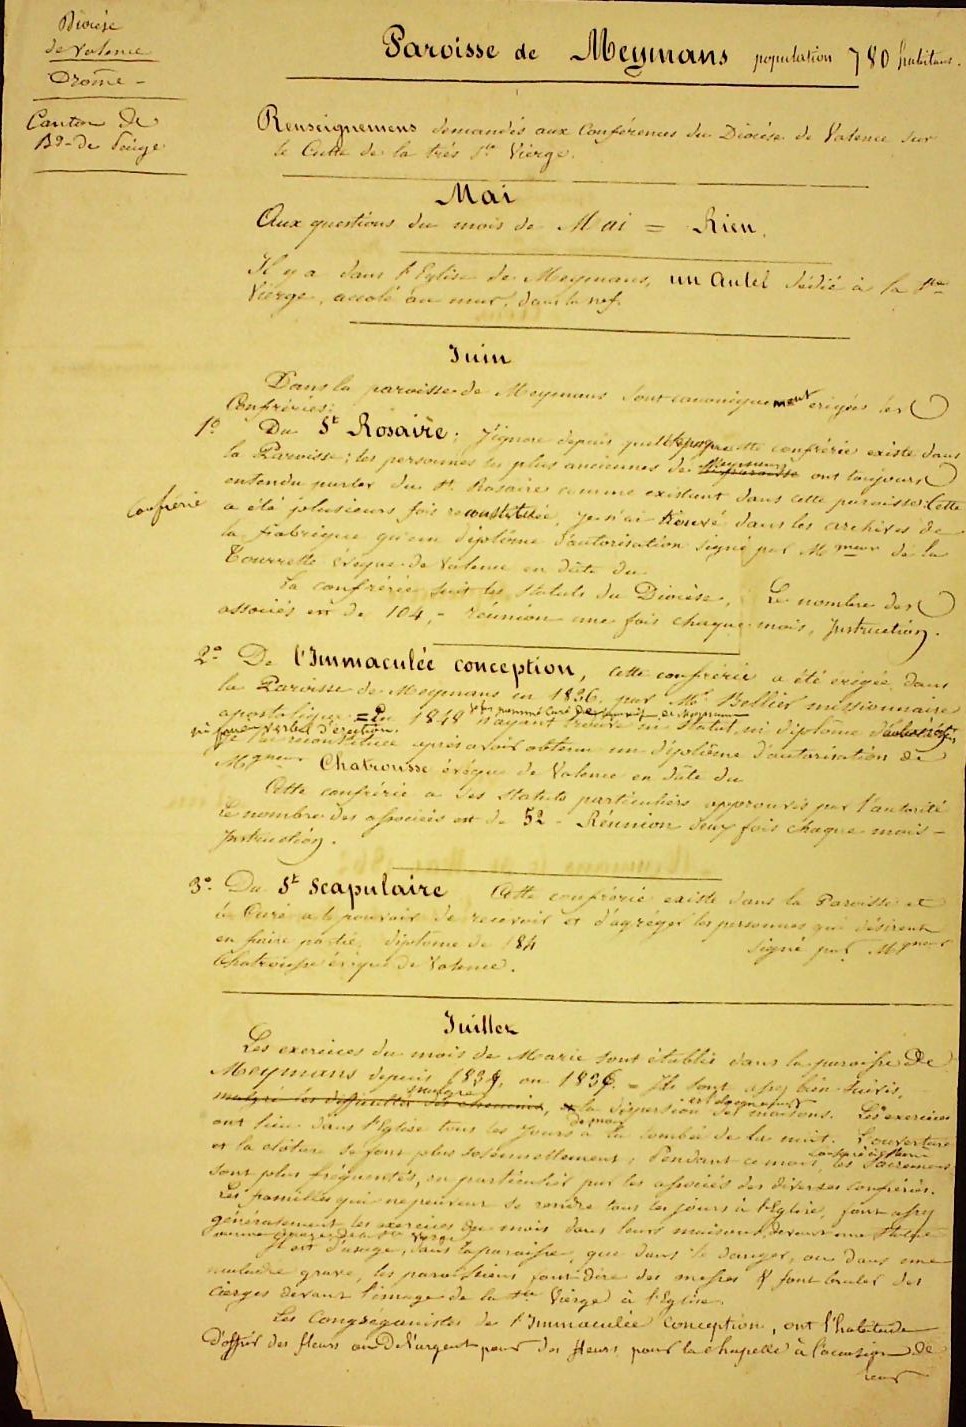 Diocèse
de Valence
Drôme -
Canton de
Bg-de Péage
Paroisse de Meymans population 780 habitans.
Renseignemens demandés aux Conférences du Diocèse de Valence sur
le Culte de la très Ste Vierge.
Mai
Aux questions du mois de Mai = Rien.
Il y a dans l'Eglise de Meymans, un autel dédié à la Ste
Vierge, accolé au mur, dans la nef.
Juin
Dans la paroisse de Meymans sont canoniquement erigées les
Confréries:
1º Du St Rosaire; J'ignore depuis quelle époque cette confrérie existe dans
la Paroisse; les personnes les plus anciennes de la paroisse Meymans ont toujours
entendu parler du St. Rosaire comme existant dans cette paroisse. Cette
confrérie
a été plusieurs fois reconstituée, Je n'ai trouvé dans les archives de
la fabrique qu'un diplôme d'autorisation signé par Mgneur de la
Tourrette évêque de Valence en date du
La confrérie suit les statuts du Diocèse, Le nombre des
associés est de 104, - réunion une fois chaque mois, Instruction.
2º De l'Immaculée conception, cette confrérie a été erigée dans
la Paroisse de Meymans en 1836, par Mr Bellier missionnaire
apostolique = En 1848 n'ayant trouvé ni statut, ni diplôme
ni procès verbal d'erection,
je l'ai reconstituée après avoir obtenu un diplôme d'autorisation de
Mgneur Chatrousse évêque de Valence en date du
Cette confrérie a des statuts particuliers approuvés par l'autorité
Le nombre des associés est de 52 - Réunion deux fois chaque mois -
Instruction.
3º Du St Scapulaire Cette confrérie existe dans la Paroisse et
le Curé a le pouvoir de recevoir et d'agréger les personnes qui désirent
en faire partie, diplôme de 184 signé par Mgneur
Chatrousse évêque de Valence.
Juillet
Les exercices du mois de Marie sont établis dans la paroisse de
Meymans depuis 1834, ou 1836. - Ils sont assez bien suivis,
malgré les difficultés des chemins, et malgré la dispersion et l'éloignement des maisons. Les exercices
ont lieu dans l'Eglise tous les jours de mai à la tombée de la nuit. L'ouverture
et la clôture se font plus solennellement; Pendant ce mois, les Sacremens
sont plus fréquentés, en particulier par les associés des diverses confréries.
Les familles qui ne peuvent se rendre tous les jours à l'Eglise, font assez
généralement les exercices du mois dans leurs maisons, devant une statue
ou une image de la Ste Vierge
Il est d'usage, dans la paroisse, que dans le danger, ou dans une
maladie grave, les paroissiens font dire des messes & font bruler des
cierges devant l'image de la Ste Vierge à l'Eglise.
Les Congréganistes de l'Immaculée conception, ont l'habitude
d'offrir des fleurs ou de l'argent pour des fleurs pour la chapelle à l'occasion de
leur